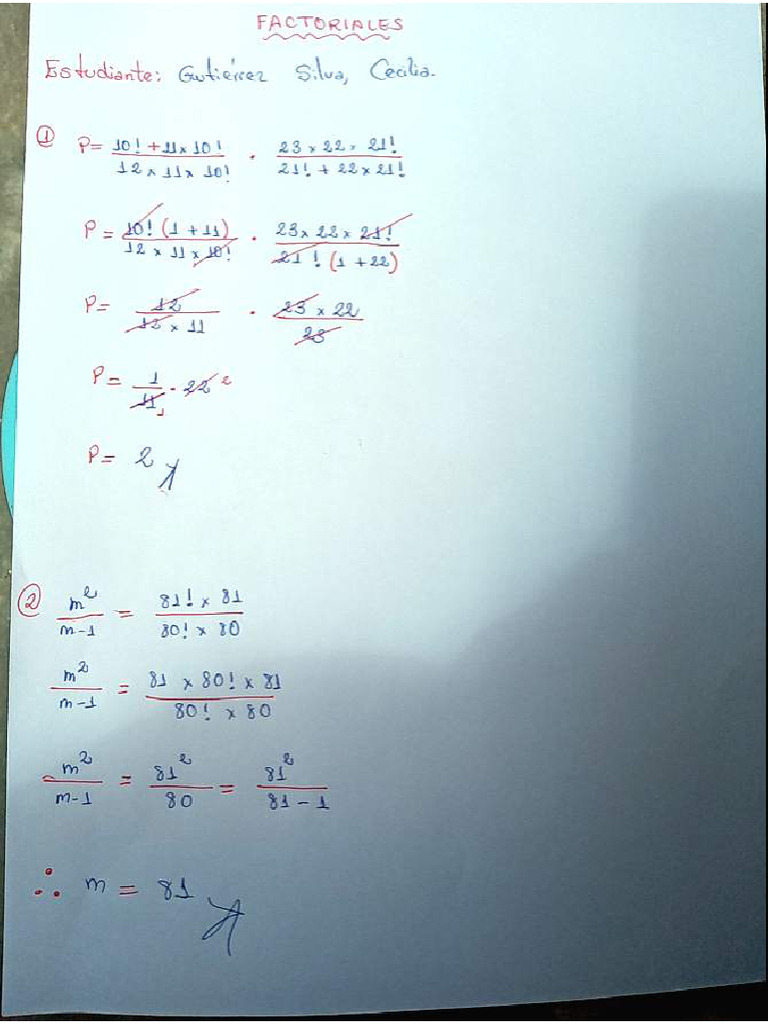 FACTORIALES
Estudiante: Gutiérrez Silva, Cecilia.
① P = \frac{10! + 11 × 10!}{12 × 11 × 10!} · \frac{23 × 22 × 21!}{21! + 22 × 21!}
P = \frac{10! (1 + 11)}{12 × 11 × 10!} · \frac{23 × 22 × 21!}{21! (1 + 22)}
P = \frac{12}{12 × 11} · \frac{23 × 22}{23}
P = \frac{1}{11_1} · 22^2
P = 2
② \frac{m^2}{m-1} = \frac{81! × 81}{80! × 80}
\frac{m^2}{m-1} = \frac{81 × 80! × 81}{80! × 80}
\frac{m^2}{m-1} = \frac{81^2}{80} = \frac{81^2}{81-1}
∴ m = 81